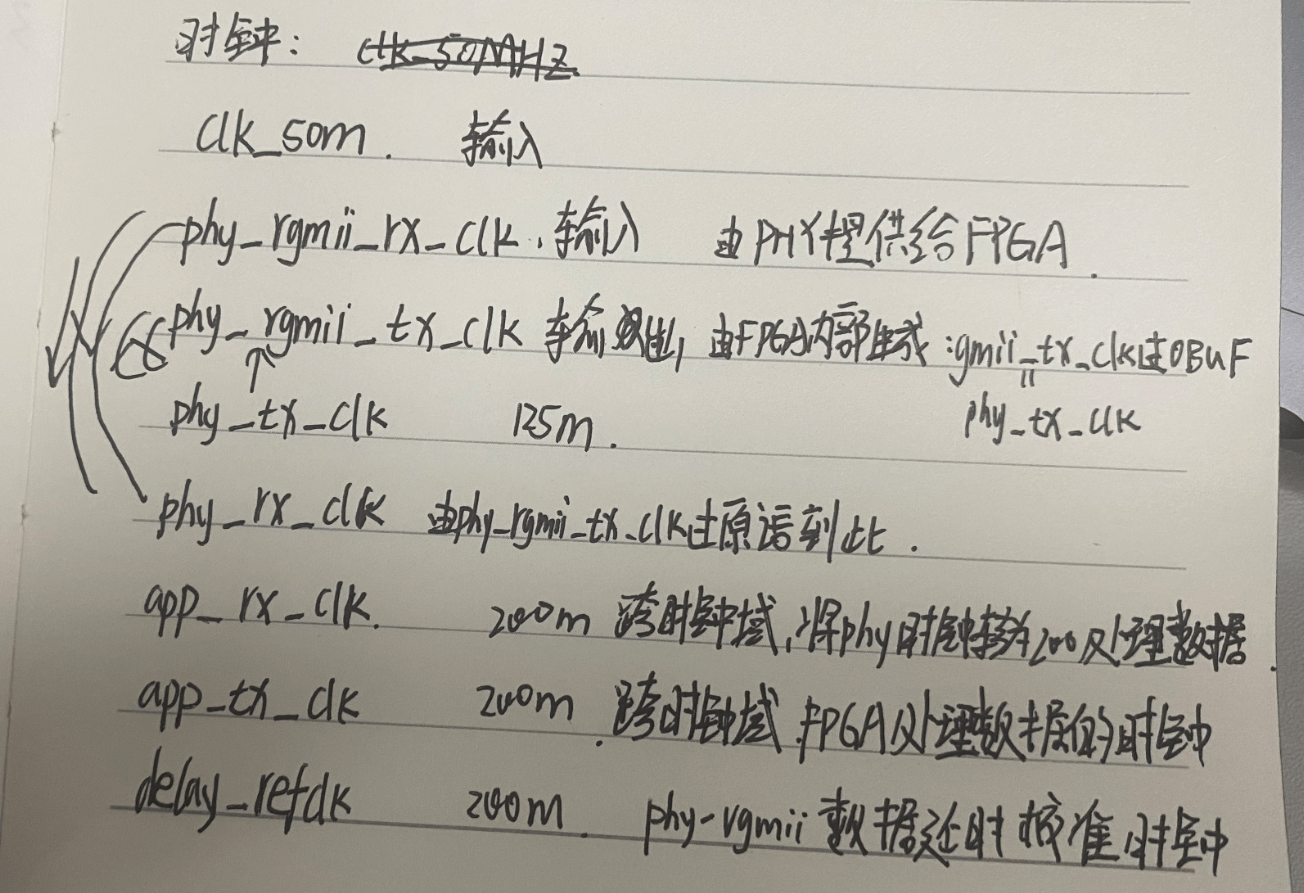 时钟: clk_50MHZ
clk_50m. 输入
phy_rgmii_rx_clk. 输入 由PHY提供给FPGA.
phy_rgmii_tx_clk 输出, 由FPGA内部生成:gmii_tx_clk过OBUF
phy_tx_clk 125m. phy_tx_clk
phy_rx_clk 由phy_rgmii_tx_clk过原语到此.
app_rx_clk. 200m 跨时钟域,将phy时钟转为200处理数据.
app_tx_clk 200m. 跨时钟域.FPGA处理数据的时钟
delay_refclk 200m. phy-rgmii数据延时校准时钟